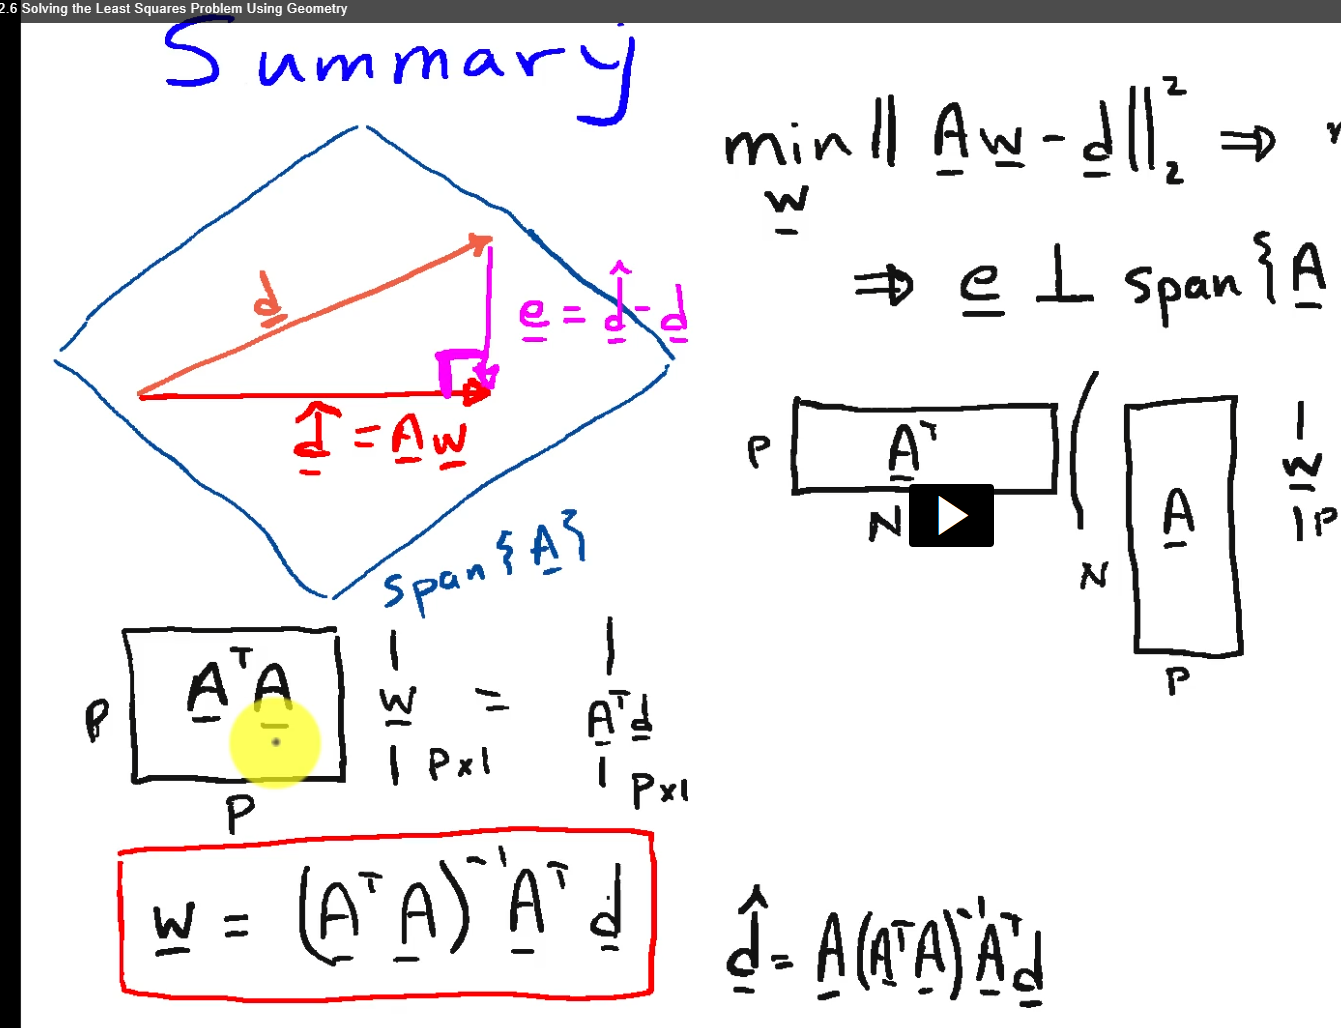 2.6 Solving the Least Squares Problem Using Geometry
Summary
min ‖ A w - d ‖₂² ⇒
w
⇒ e ⊥ span { A
d
e = d̂ - d
d̂ = A w
span { A }
P Aᵀ ( A w
N N P
P
P AᵀA w = Aᵀd
P P×1 P×1
w = (Aᵀ A)⁻¹ Aᵀ d
d̂ = A (AᵀA)⁻¹ Aᵀ d